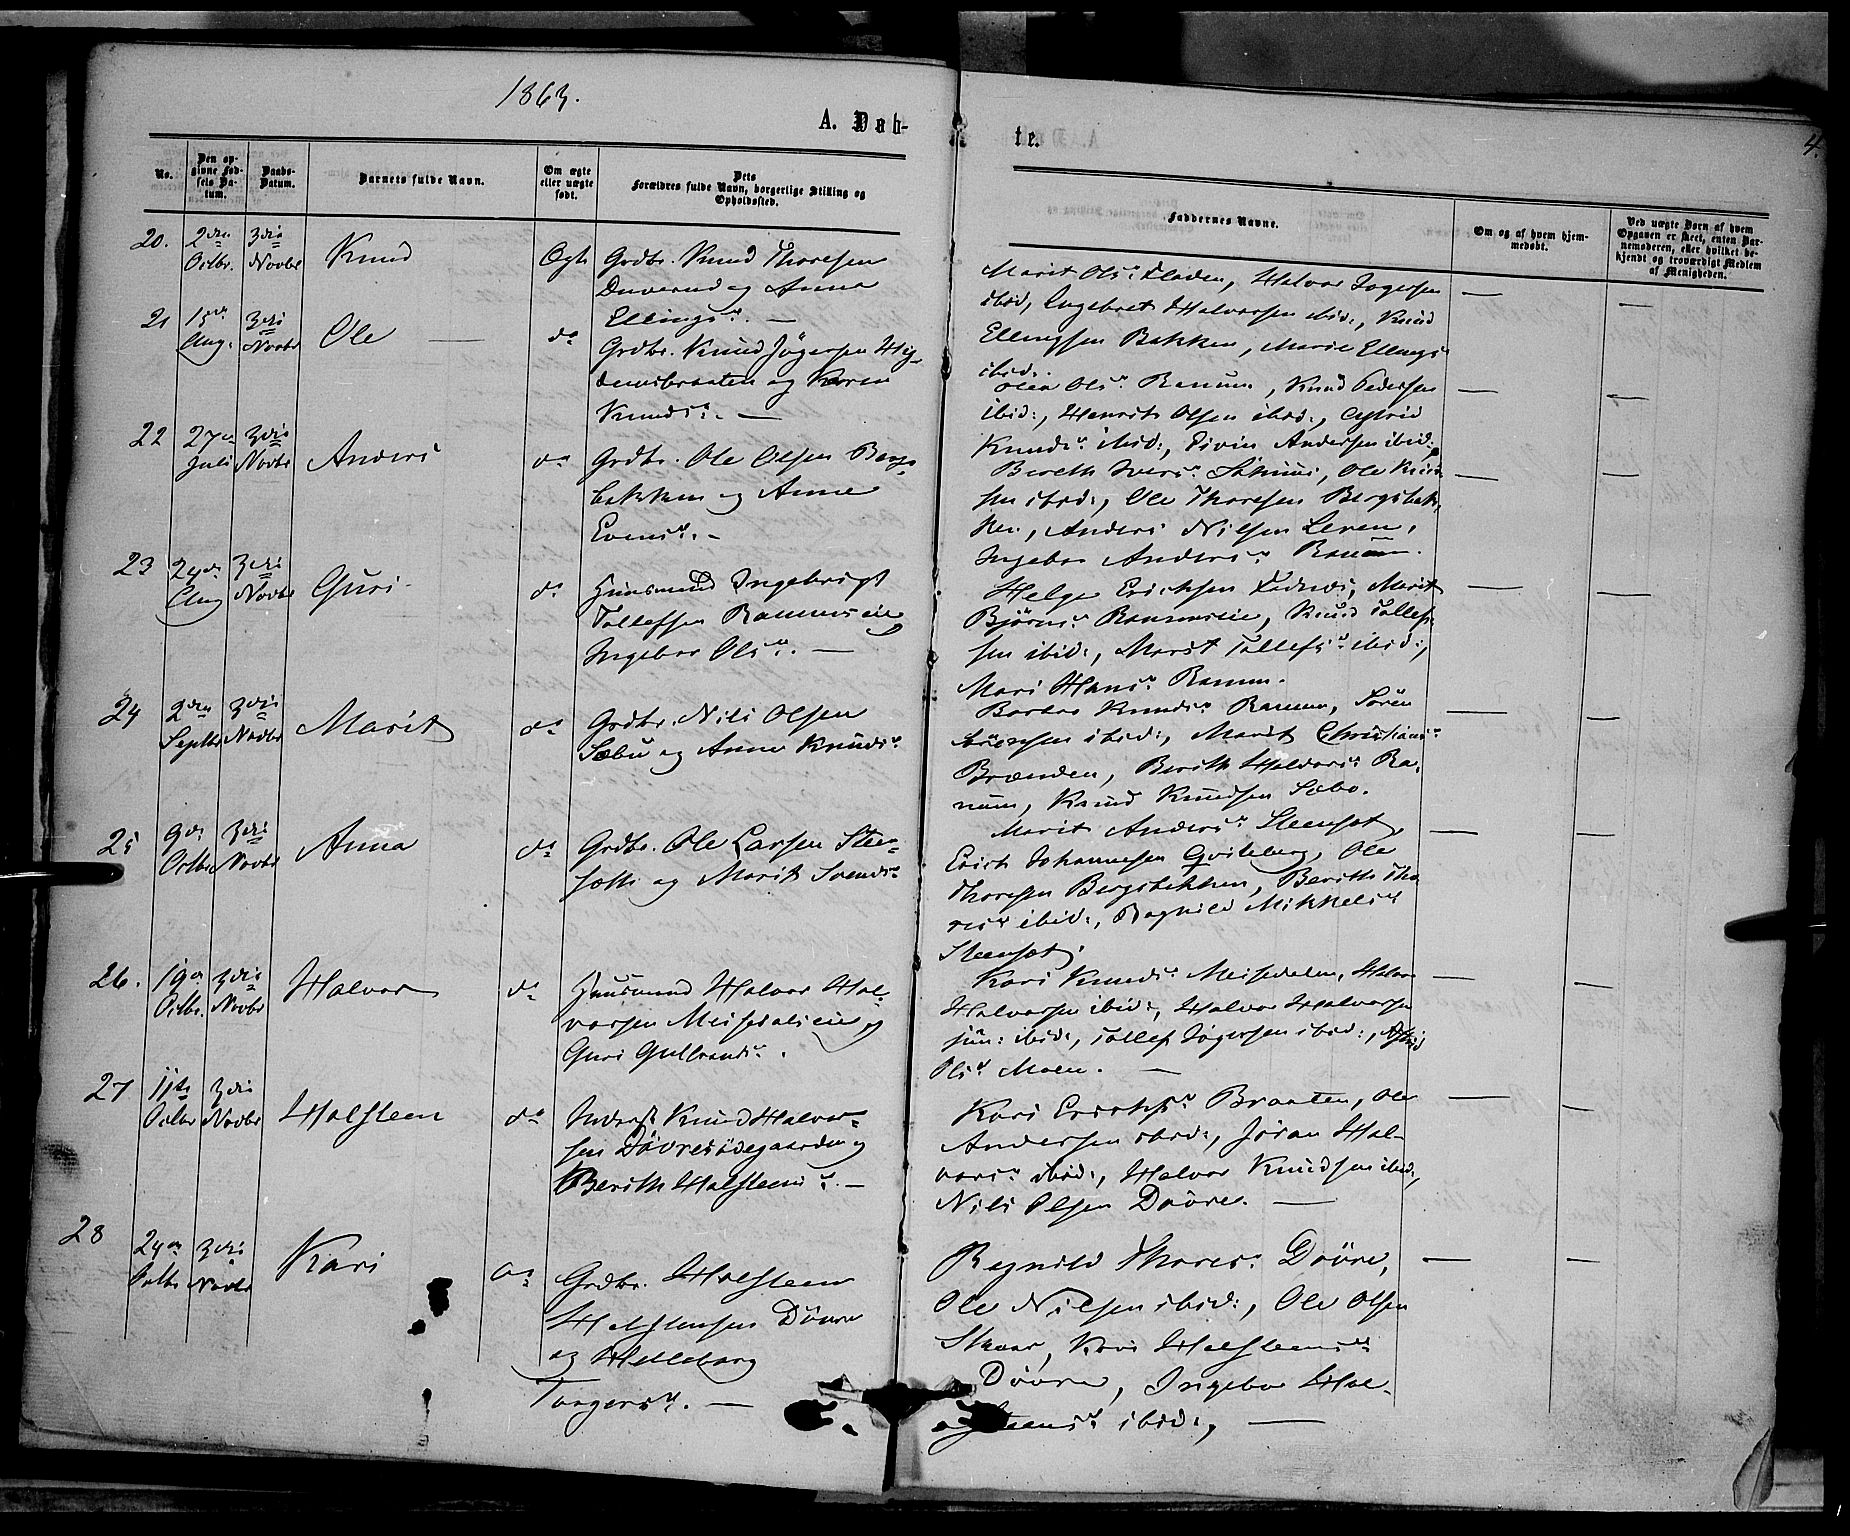 1863.
A. Døb-
te.
4.
No.
Den op-
givne Fød-
sels Da-
tum.
Daabs-
Datum.
Barnets fulde Navn.
Om ægte
eller uægte
født.
Dets
Forældres fulde Navn, borgerlige Stilling og
Opholdssted.
Faddernes Navne.
Om og af hvem hjem-
medøbt.
Ved uægte Børn af hvem
Opgaven er skeet, enten Bar-
nemoderen, eller hvilket be-
kjendt og troværdigt Medlem
af Menigheden.
20. 2den Octbr. 3die Novbr Knud Ægte
Grdbr. Knud Thoresen
og Anna
Ellingsd. —
Marit Olsd. Fladen, Halvor Jogersen
ibid, Engebret Halvorsen ibid:, Knud
Ellingsen Bakken, Marie Ellingsd
ibid.
21 15de Aug. 3die Novbr Ole — do
Grdbr. Knud Jøgersen
og Karen
Knudsd. —
Olea Olsd. Ranum, Knud Pedersen
ibid:, Henrik Olsen ibid:,
Knudsd. ibid:, Eivin Andersen ibid:
22 27de Juli 3die Novbr Anders do
Grdbr. Ole Olsen Bergs-
bakken og Anne
Evensd. —
Bereth Iversd. Ole Knud-
sen ibid:, Ole Thoresen Bergsbak-
ken, Anders Nilsen Leren,
Ingebor Andersd. Ranum.
23 24de Aug 3die Novbr Guri do
Huusmand Ingebrigt
Tollefsen Ranumseie
Ingebor Olsd. —
Helge Erichsen Marit
Bjørnsd. Ranumseie, Knud Tollef-
sen ibid:, Marit Tollefsd. ibid:,
Mari Hansd. Ranum.
24 2den Septbr 3die Novbr Marit do
Grdbr. Nils Olsen
Sæbu og Anne Knudsd.
Barbro Knudsd. Ranum, Sören
Sörensen ibid:, Marit Christiansd.
Brænden, Berith Halvorsd. Ra-
num, Knud Knudsen Sæbo.
25 9de Octbr 3die Novbr Anna do
Grdbr. Ole Larsen Steen-
sætt og Marit Svendsd.
Marit Andersd. Steensæt,
Erich Johannesen Ole
Thoresen Bergsbakken, Berith Tho-
resd. ibid:, Ragnild Mikkelsd.
Steensæt.
26. 19de Octbr. 3die Novbr Halvor do
Huusmand Halvor Hal-
vorsen Meisdalseie og
Guri Gulbrandsd.
Kari Knudsd. Meisdalen, Halvor
Halvorsen ibid:, Halvor Halvorsen
jun: ibid:, Tollef Jøgersen ibid:,
Olsd. Moen. —
27 11te Octbr 3die Novbr Halsteen do
Inderst Knud Halvor-
sen Dövresödegaarden og
Berith Halsteensd. —
Kari Erichsd. Braaten, Ole
Andersen ibid:, Jöran Hal-
vorsd. ibid:, Halvor Knudsen ibid:,
Nils Olsen Dövre. —
28 24de Octbr 3die Novbr Kari do
Grdbr. Halsteen
Halstensen Dövre
og Helleborg
Torgersd. —
Ragnild Thoresd. Dövre,
Ole Nilsen ibid:, Ole Olsen
Kari Halsteensd.
Dövre, Ingebor Hal-
steensd. ibid:, —